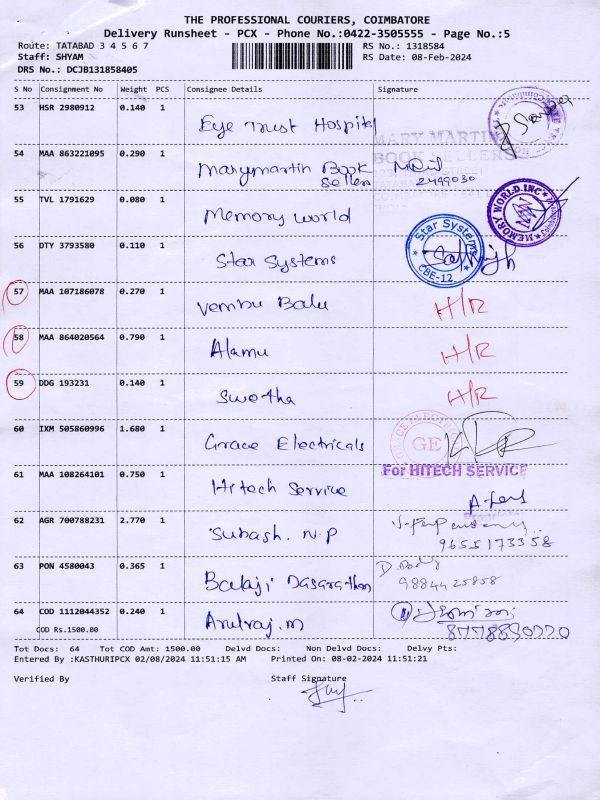 THE PROFESSIONAL COURIERS, COIMBATORE
Delivery Runsheet - PCX - Phone No.:0422-3505555 - Page No.:5
Route: TATABAD 3 4 5 6 7 RS No.: 1318584
Staff: SHYAM RS Date: 08-Feb-2024
DRS No.: DCJB131858405
S No Consignment No Weight PCS Consignee Details Signature
53 HSR 2980912 0.140 1
Eye Trust Hospital
54 MAA 863221095 0.290 1
MARY MARTIN
BOOK SELLERS
Marymartin Book
Sellers 2499030
55 TVL 1791629 0.080 1
Memory world
MEMORY WORLD.INC
56 DTY 3793580 0.110 1
Star Systems
Star Systems
CBE-12
57 MAA 107186078 0.270 1
Vembu Balu H/R
58 MAA 864020564 0.790 1
Alamu H/R
59 DDG 193231 0.140 1
Swetha H/R
60 IXM 505860996 1.680 1
Grace Electricals
GE
61 MAA 108264101 0.750 1 For HITECH SERVICE
Hitech Service
62 AGR 700788231 2.770 1
Subash. N.P 9655173358
63 PON 4580043 0.365 1
Balaji Dasarathan 9884425858
64 COD 1112044352 0.240 1
Arulraj.m 8778890770
COD Rs.1500.00
Tot Docs: 64 Tot COD Amt: 1500.00 Delvd Docs: Non Delvd Docs: Delvy Pts:
Entered By :KASTHURIPCX 02/08/2024 11:51:15 AM Printed On: 08-02-2024 11:51:21
Verified By Staff Signature